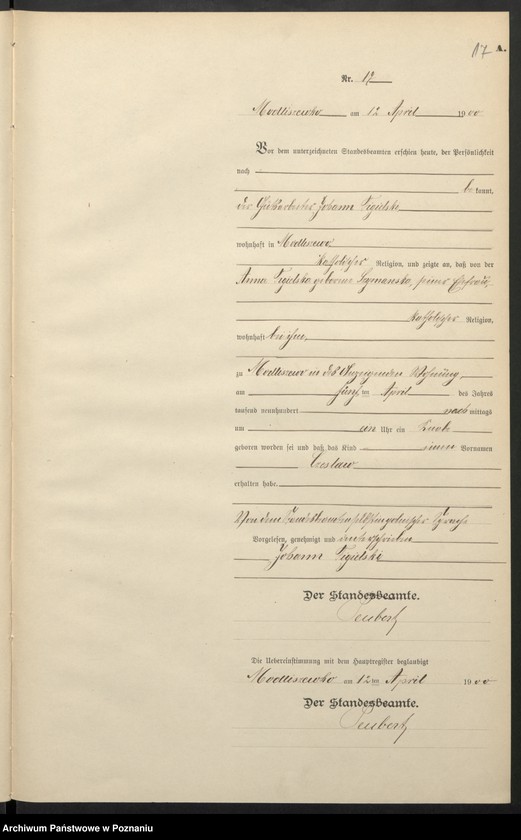 17 A.
Nr. 12
Modliszewko am 12 April 1900
Vor dem unterzeichneten Standesbeamten erschien heute, der Persönlichkeit
nach
bekannt,
der Johann
wohnhaft in Modliszewo
katholischer Religion, und zeigte an, daß von der
Anna geborene seiner Ehefrau,
katholischer Religion,
wohnhaft bei ihm,
zu Modliszewo in des Wohnung,
am fünften April des Jahres
tausend neunhundert nachmittags
um Uhr ein Knabe
geboren worden sei und daß das Kind einen Vornamen
Czeslaw
erhalten habe.
Von dem Standesbeamten selbst in polnischer Sprache
Vorgelesen, genehmigt und unterschrieben
Johann
Der Standesbeamte.
Die Uebereinstimmung mit dem Hauptregister beglaubigt
Modliszewko am 12ten April 1900
Der Standesbeamte.
Archiwum Państwowe w Poznaniu